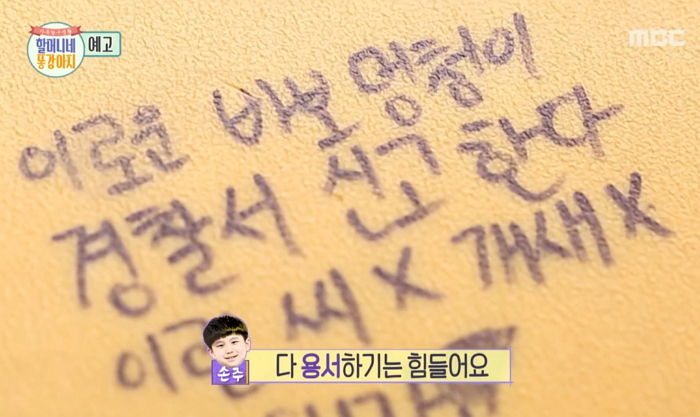 할머니네 똥강아지
예고
MBC
이로운 바보 멍청이
경찰서 신고 한다
이로운 씨X 개새X
손주
다 용서하기는 힘들어요